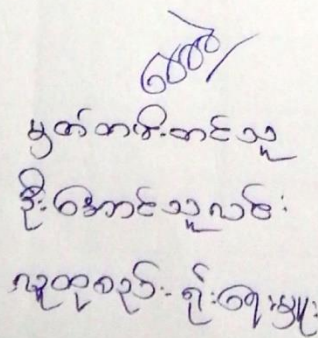 မှတ်တမ်းတင်သူ
ဦးအောင်သူလမ်း
လူထုစည်းရုံးရေးမှူး